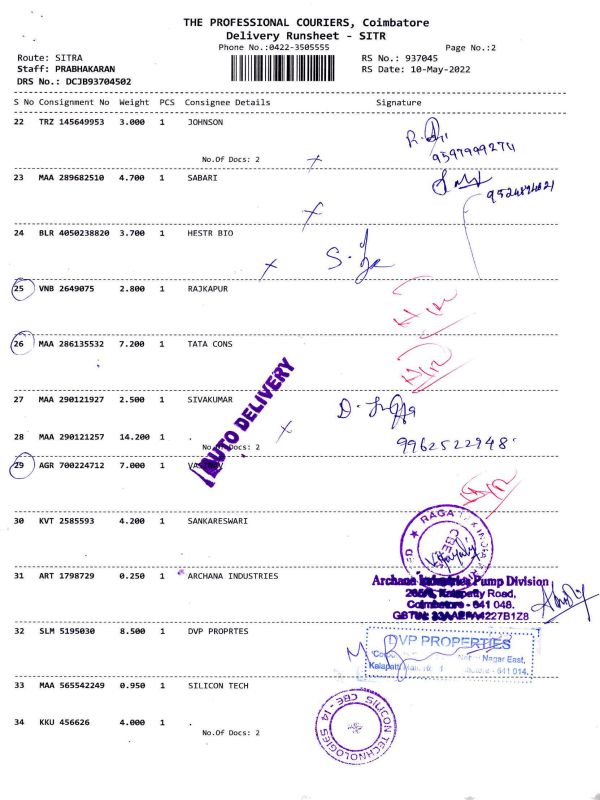 THE PROFESSIONAL COURIERS, Coimbatore
Delivery Runsheet - SITR
Phone No.:0422-3505555 Page No.:2
Route: SITRA RS No.: 937045
Staff: PRABHAKARAN RS Date: 10-May-2022
DRS No.: DCJB93704502
S No Consignment No Weight PCS Consignee Details Signature
22 TRZ 145649953 3.000 1 JOHNSON
No.Of Docs: 2
9597999274
23 MAA 289682510 4.700 1 SABARI
24 BLR 4050238820 3.700 1 HESTR BIO
25 VNB 2649075 2.800 1 RAJKAPUR
26 MAA 286135532 7.200 1 TATA CONS
27 MAA 290121927 2.500 1 SIVAKUMAR
AUTO DELIVERY
28 MAA 290121257 14.200 1 .
No.Of Docs: 2
9962522948
29 AGR 700224712 7.000 1
30 KVT 2585593 4.200 1 SANKARESWARI
31 ART 1798729 0.250 1 ARCHANA INDUSTRIES
Archana Industries Pump Division
Kalapatty Road,
Coimbatore - 641 048.
32 SLM 5195030 8.500 1 DVP PROPRTES
DVP PROPERTIES
Nagar East,
Kalapatti Main 641 014.
33 MAA 565542249 0.950 1 SILICON TECH
34 KKU 456626 4.000 1 .
No.Of Docs: 2
SILICON TECHNOLOGIES CBE - 14